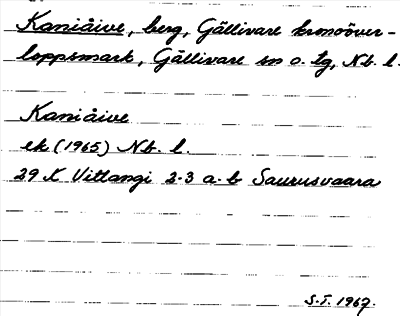 Kaniåive, berg, Gällivare kronoöver-
loppsmark, Gällivare sn o. tg, Nb. l.
Kaniåive
ek (1965) Nb. l.
29 K Vittangi 2-3 a-b Saurusvaara
S.T. 1967.